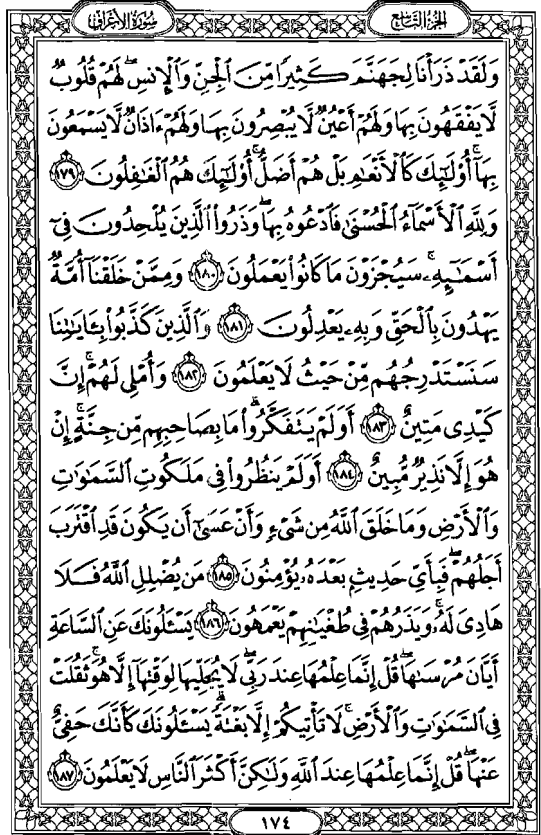 الجزء التاسع
سورة الأعراف
وَلَقَدْ ذَرَأْنَا لِجَهَنَّمَ كَثِيرًا مِّنَ الْجِنِّ وَالْإِنسِ ۖ لَهُمْ قُلُوبٌ
لَّا يَفْقَهُونَ بِهَا وَلَهُمْ أَعْيُنٌ لَّا يُبْصِرُونَ بِهَا وَلَهُمْ ءَاذَانٌ لَّا يَسْمَعُونَ
بِهَآ ۚ أُو۟لَـٰٓئِكَ كَالْأَنْعَـٰمِ بَلْ هُمْ أَضَلُّ ۚ أُو۟لَـٰٓئِكَ هُمُ الْغَـٰفِلُونَ ١٧٩
وَلِلَّهِ الْأَسْمَآءُ الْحُسْنَىٰ فَادْعُوهُ بِهَا ۖ وَذَرُوا۟ الَّذِينَ يُلْحِدُونَ فِىٓ
أَسْمَـٰٓئِهِۦ ۚ سَيُجْزَوْنَ مَا كَانُوا۟ يَعْمَلُونَ ١٨٠ وَمِمَّنْ خَلَقْنَآ أُمَّةٌ
يَهْدُونَ بِالْحَقِّ وَبِهِۦ يَعْدِلُونَ ١٨١ وَالَّذِينَ كَذَّبُوا۟ بِـَٔايَـٰتِنَا
سَنَسْتَدْرِجُهُم مِّنْ حَيْثُ لَا يَعْلَمُونَ ١٨٢ وَأُمْلِى لَهُمْ ۚ إِنَّ
كَيْدِى مَتِينٌ ١٨٣ أَوَلَمْ يَتَفَكَّرُوا۟ ۗ مَا بِصَاحِبِهِم مِّن جِنَّةٍ ۚ إِنْ
هُوَ إِلَّا نَذِيرٌ مُّبِينٌ ١٨٤ أَوَلَمْ يَنظُرُوا۟ فِى مَلَكُوتِ السَّمَـٰوَٰتِ
وَالْأَرْضِ وَمَا خَلَقَ اللَّهُ مِن شَىْءٍ وَأَنْ عَسَىٰٓ أَن يَكُونَ قَدِ اقْتَرَبَ
أَجَلُهُمْ ۖ فَبِأَىِّ حَدِيثٍۭ بَعْدَهُۥ يُؤْمِنُونَ ١٨٥ مَن يُضْلِلِ اللَّهُ فَلَا
هَادِىَ لَهُۥ ۚ وَيَذَرُهُمْ فِى طُغْيَـٰنِهِمْ يَعْمَهُونَ ١٨٦ يَسْـَٔلُونَكَ عَنِ السَّاعَةِ
أَيَّانَ مُرْسَىٰهَا ۖ قُلْ إِنَّمَا عِلْمُهَا عِندَ رَبِّى ۖ لَا يُجَلِّيهَا لِوَقْتِهَآ إِلَّا هُوَ ۚ ثَقُلَتْ
فِى السَّمَـٰوَٰتِ وَالْأَرْضِ ۚ لَا تَأْتِيكُمْ إِلَّا بَغْتَةً ۗ يَسْـَٔلُونَكَ كَأَنَّكَ حَفِىٌّ
عَنْهَا ۖ قُلْ إِنَّمَا عِلْمُهَا عِندَ اللَّهِ وَلَـٰكِنَّ أَكْثَرَ النَّاسِ لَا يَعْلَمُونَ ١٨٧
١٧٤